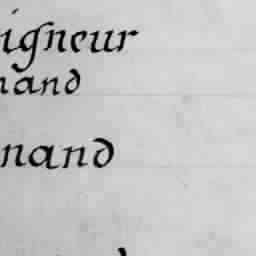 igneur
nand
nand